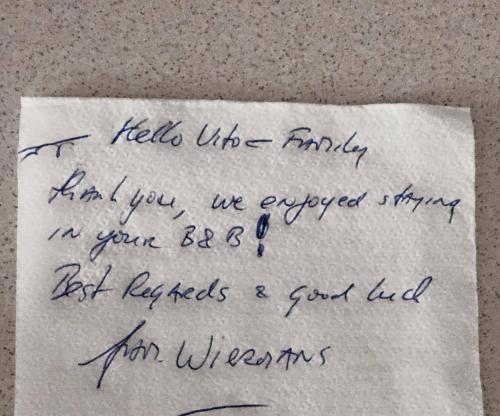 Hello Vito = Family
thank you, we enjoyed staying
in your B&B!
Best Regards & good luck
fam.